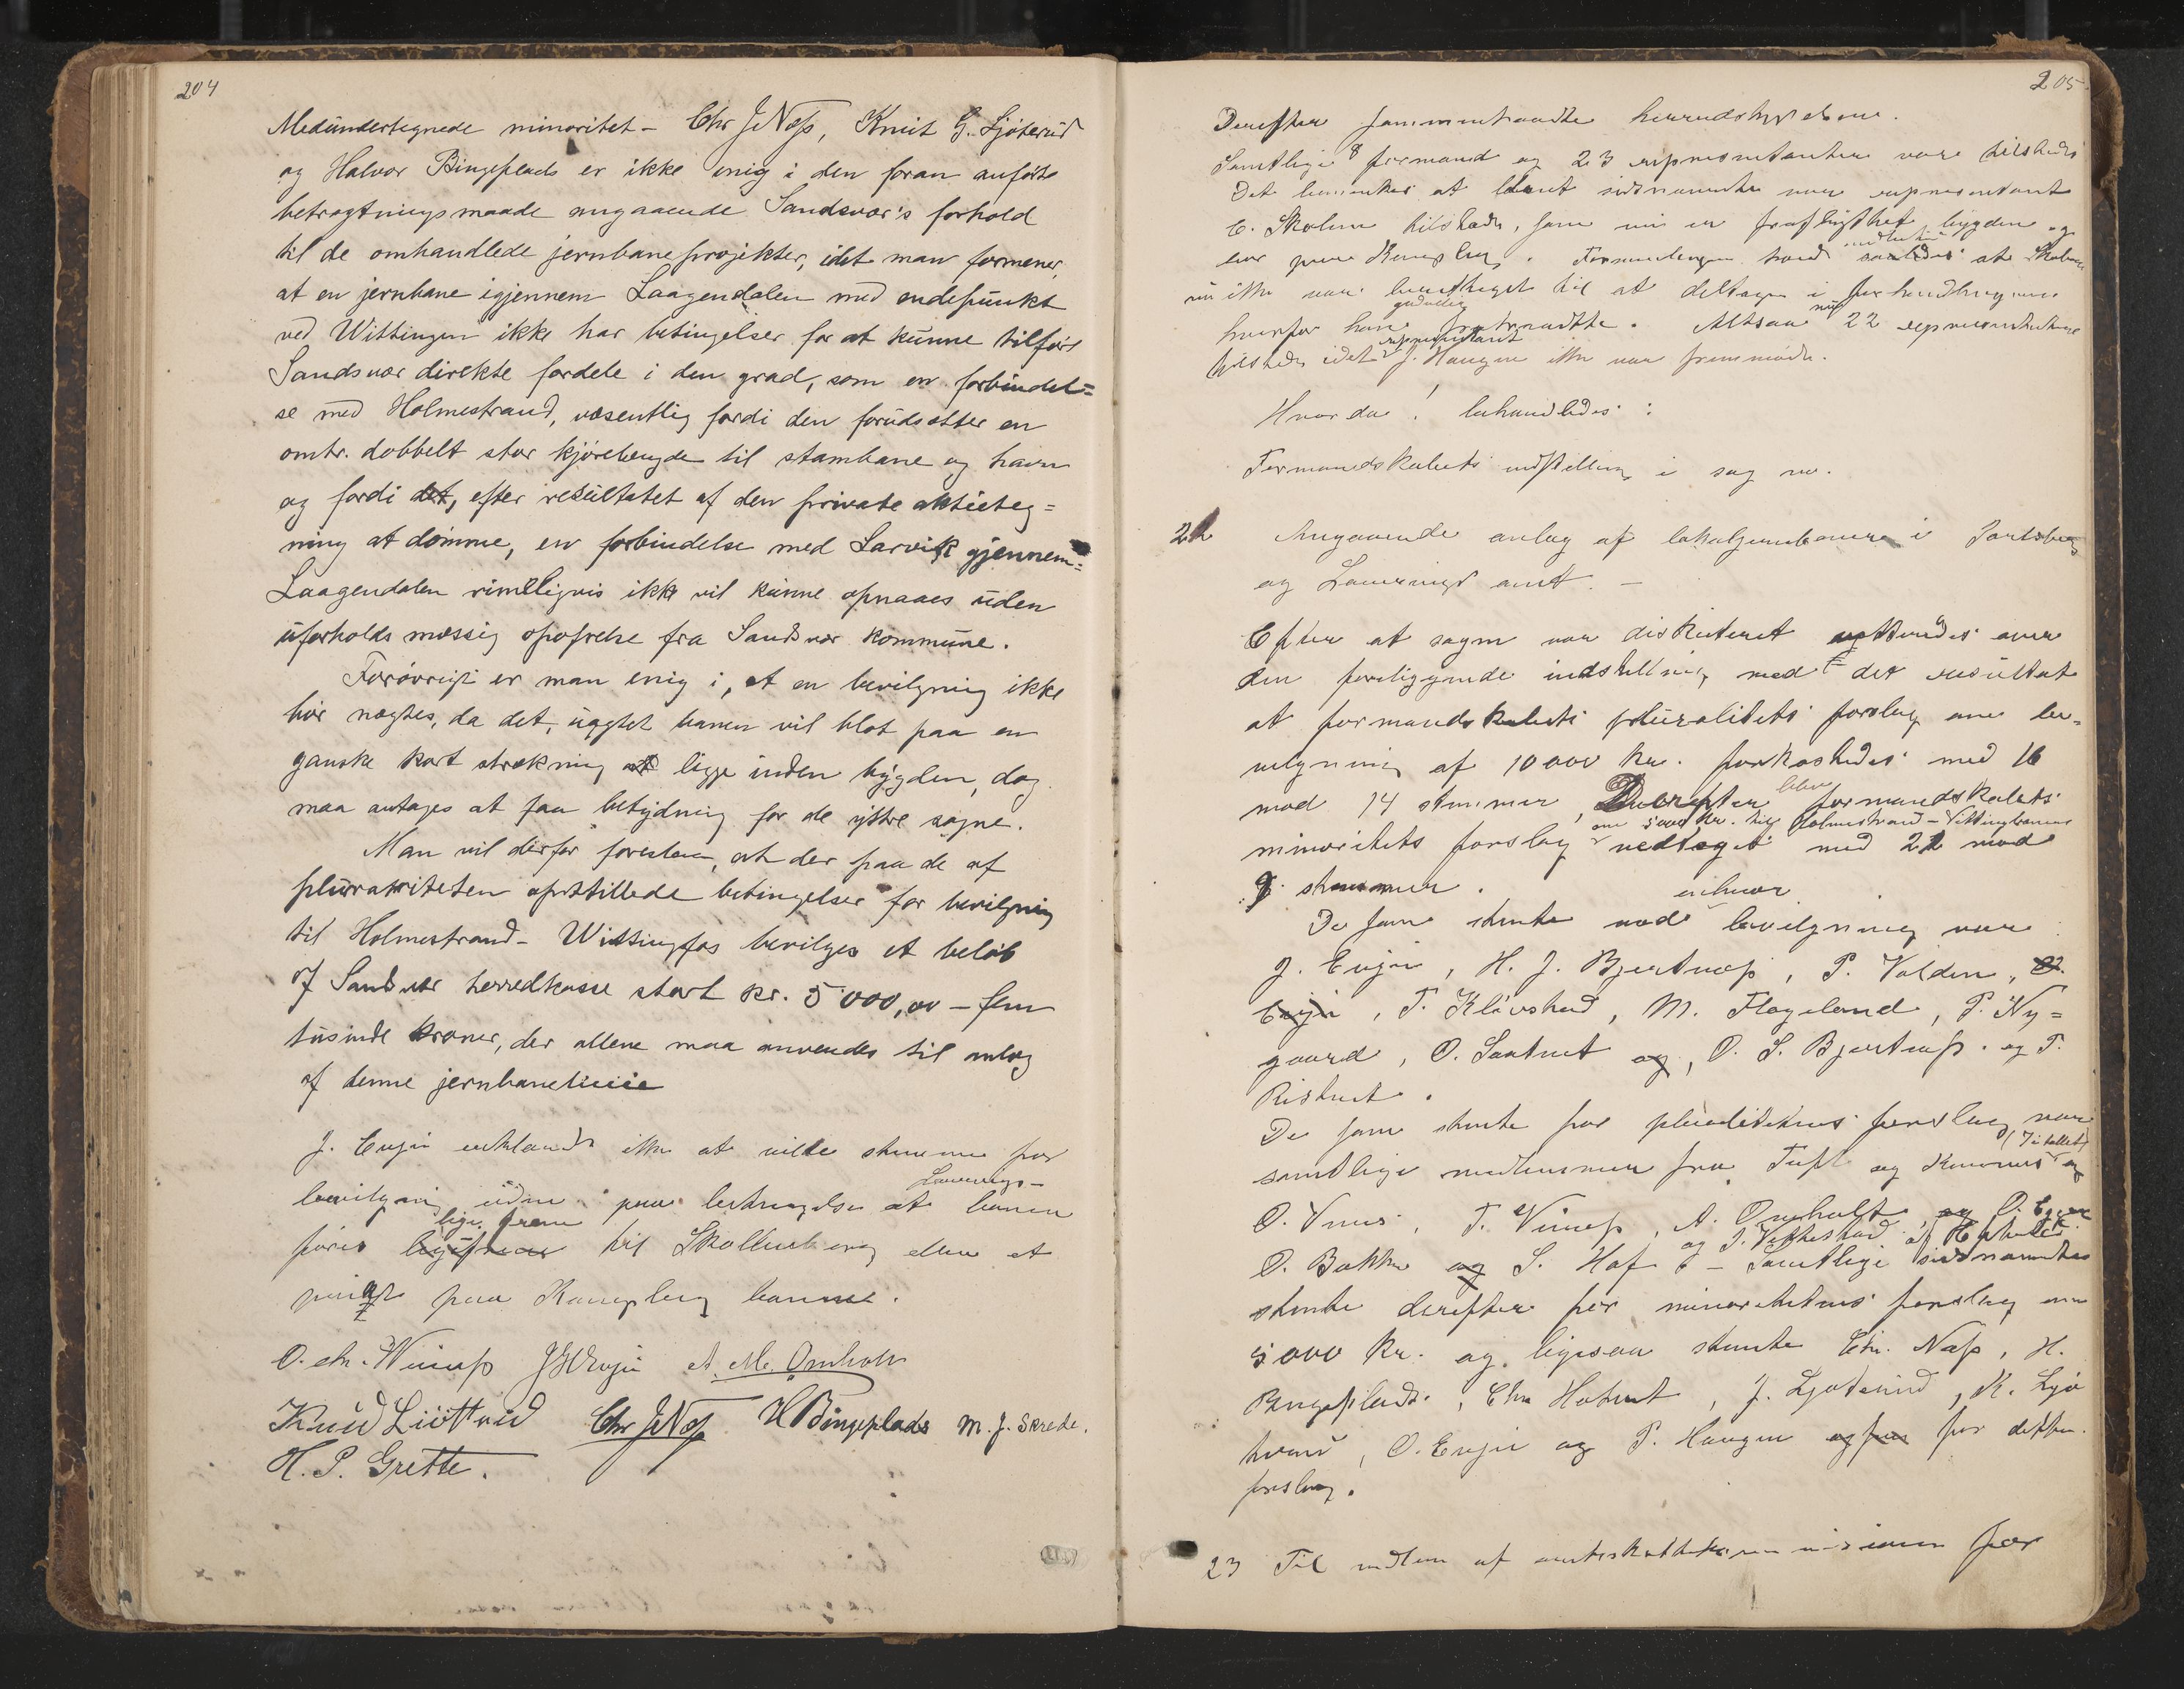 204
Medundertegnede minoritet – Chr J Næss, Knut G. Ljøterud
og Halvor Bingeplads er ikke enig i den foran anførte
betragtningsmaade angaaende Sandsvær's forhold
til de omhandlede jernbaneprojekter, idet man formener,
at en jernbane igjennem Laagendalen med endepunkt
ved Wittingen ikke har betingelser for at kunne tilføre
Sandsvær direkte fordele i den grad, som en forbindel=
se med Holmestrand, væsentlig fordi den forudsætter en
omtr. dobbelt stor kjørelengde til stambane og havn
og fordi det, efter resultatet af den private aktieteg=
ning at dømme, en forbindelse med Larvik gjennem=
Laagendalen rimeligvis ikke vil kunne opnaaes uden
uforholdsmæssig opofrelse fra Sandsvær kommune.
Forøvrigt er man enig i, at en bevilgning ikke
bør nægtes, da det, uagtet banen vil blot paa en
ganske kort strækning at ligge inden bygden, dog
maa antages at faa betydning for de ytre sogne.
Man vil derfor foreslaa, at der paa de af
pluraliteten opstillede betingelser for bevilgning
til Holmestrand – Wittingfos bevilges et beløb
af Sandsvær herredkasse stort kr. 5000,00 – fem
tusinde kroner, der allene maa anvendes til anlæg
af denne jernbanelinie
J. Evju erklærede ikke at ville stemme for
bevilgning uden paa betingelse at Laurvigs-banen
føres lige frem til Skollenborg eller et
punkt paa Kongsberg banen.
O. Chr. Winsnes J J Evju A. M. Omholt
Knud Liøtterud Chr J Næss H Bingeplads M. J. Skrede.
H. P. Grette.
205
Derefter sammentraadte herredsstyrelsen.
Samtlige 8 formænd og 23 repræsentanter vare tilstede
Det bemerkes at blant sidstnævnte var repræsentant
C. Skolmen tilstede, som nu er fraflyttet bygden og
bor paa Kongsberg. Formentlig at Skolmen
nu ikke var berettiget til at deltage i forhandlingerne
hvorfor han godvillig fratraadte. Altsaa nu 22 repræsentanter
tilstede idet repræsentant J. Haugen ikke var fremmødt.
Hvor da! behandledes:
Formandskabets indstilling i sag no.
22 Angaaende anlæg af lokaljernbaner i Jarlsberg
og Laurvigs amt. –
Efter at sagen var diskuteret votteredes over
den foreliggende indstilling med det resultat
at formandskabets pluralitets forslag om be=
vilgning af 10000 kr. forkastedes med 16
mod 14 stemmer, Derefter blev formandskabets
minoritets forslag om 5000 kr. til Holmestrand – Vittingbanen vedtaget med 21 mod
9 stemmer.
De som stemte mod enhver bevilgning vare
J. Evju, H. J. Bjertnæs, P. Volden, O.
Evju, T. Kløvstad, M. Flageland, P. Ny=
gaard, O. Saatvet og, O. S. Bjertnæs. og T.
Ristvet.
De som stemte for pluralitetens forslag vare
samtlige medlemmer fra Tuft og Komnes (7 i tallet) og
O. Vinnes, T. Vinnes, A. Omholt, og O. Eggen
O. Bakke og S. Hof og T. Vetteland – Samtlige sidstnævnte
stemte derefter for minoritetens forslag om
5000 kr. og ligesaa stemte Chr. Næss, H.
Bingeplads, Chr Hotvet, J. Ljøterud, K. Ljø
terud, O. Evju og P. Haugen og for dette
forslag.
23 Til medlem af amtsskattekommissionen for